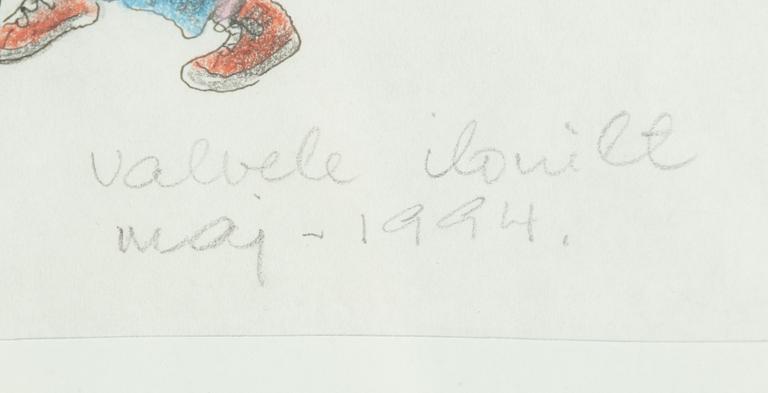 valvele ilonilt
maj - 1994.